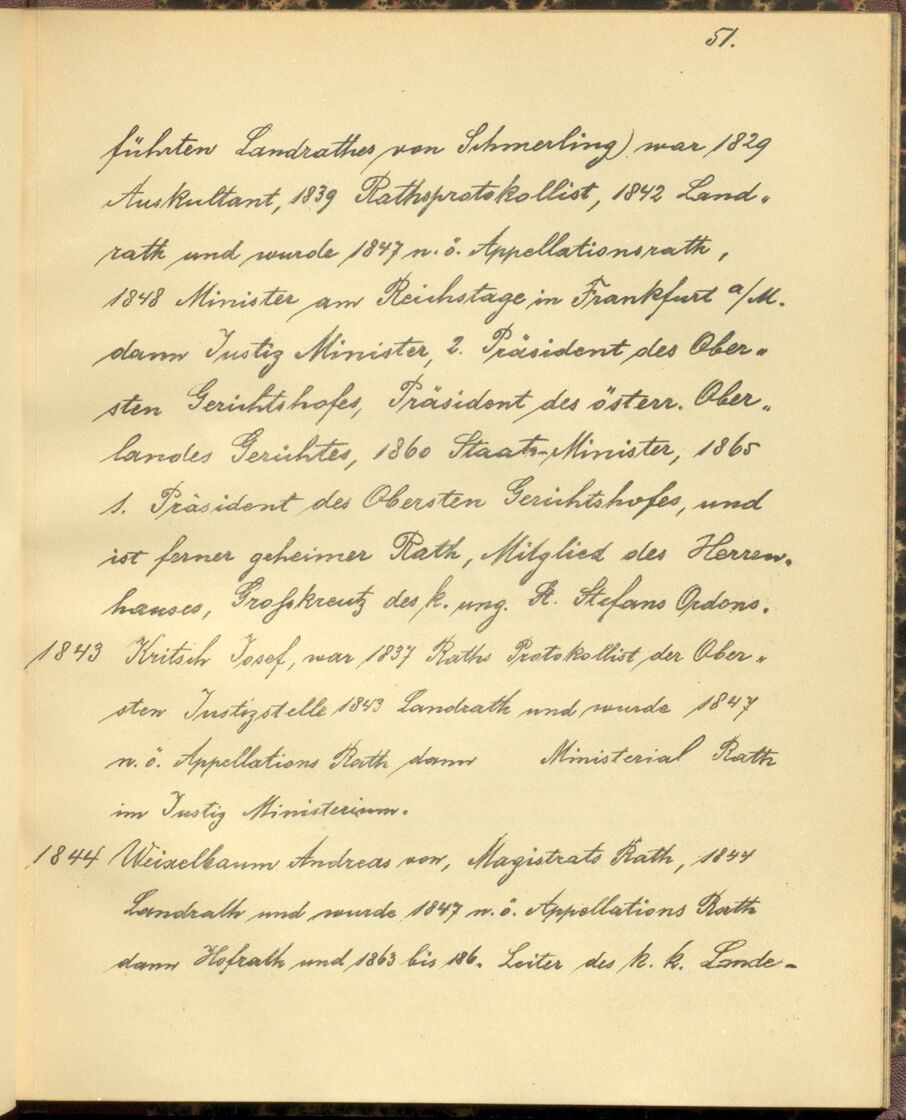 51.
führten Landrathes von Schmerling) war 1829
Auskultant, 1839 Rathsprotokollist, 1842 Land„
rath und wurde 1847 n. ö. Appellationsrath,
1848 Minister am Reichstage in Frankfurt a/M.
dann Justiz Minister, 2. Präsident des Ober„
sten Gerichtshofes, Präsident des österr. Ober„
landes Gerichtes, 1860 Staats-Minister, 1865
1. Präsident des Obersten Gerichtshofes, und
ist ferner geheimer Rath, Mitglied des Herren„
hauses, Großkreutz des k. ung. St. Stefans Ordens.
1843 Kritsch Josef, war 1837 Raths Protokollist der Ober„
sten Justizstelle 1843 Landrath und wurde 1847
n. ö. Appellations Rath dann Ministerial Rath
im Justiz Ministerium.
1844 Weixelbaum Andreas von, Magistrats Rath, 1844
Landrath und wurde 1847 n. ö. Appellations Rath
dann Hofrath und 1863 bis 186. Leiter des k. k. Lande-